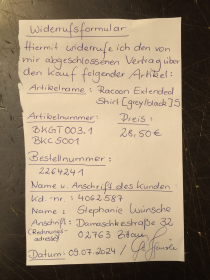 Widerrufsformular
Hiermit widerrufe ich den von
mir abgeschlossenen Vertrag über
den Kauf folgender Artikel:
Artikelname: Racoon Extended
Shirt [grey/black] S
Artikelnummer: Preis:
BKGT003.1 28,50€
BKCS001
Bestellnummer:
2264241
Name u. Anschrift des Kunden:
Kd.-nr.: 4062587
Name: Stephanie Wünsche
Anschrift: Damaschkestraße 32
(Rechnungs- 02763 Zittau
adresse)
Datum: 09.07.2024 /